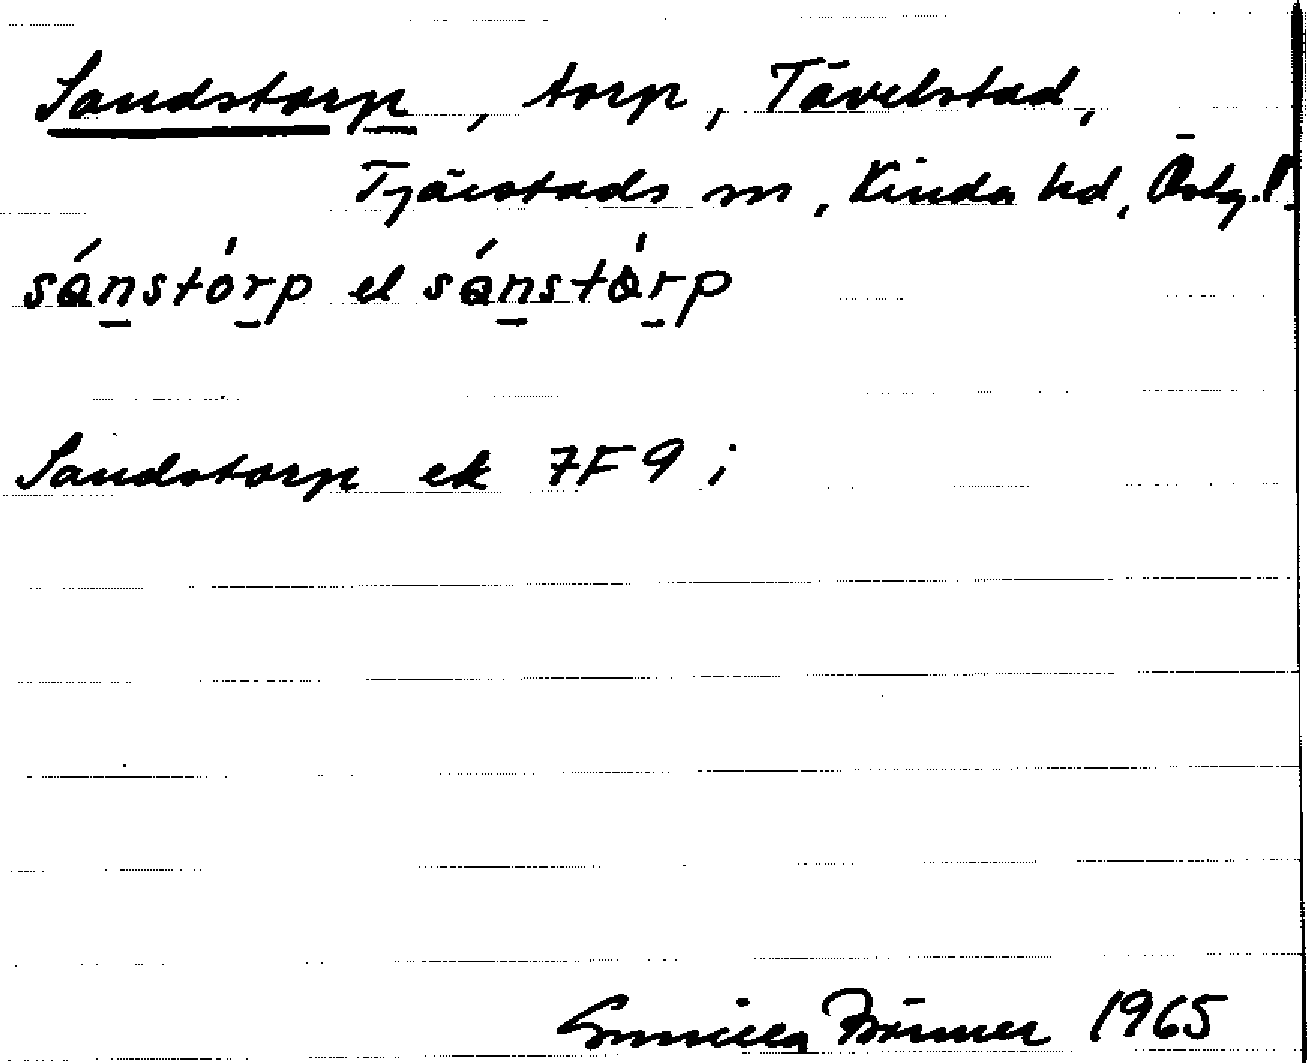 Sandstorp, torp, Tävelstad,
Tjärstads sn, Kinda hd, Östg.l.
sánstórp el sánstǻrp
Sandstorp ek 7F 9 i
Gunilla 1965